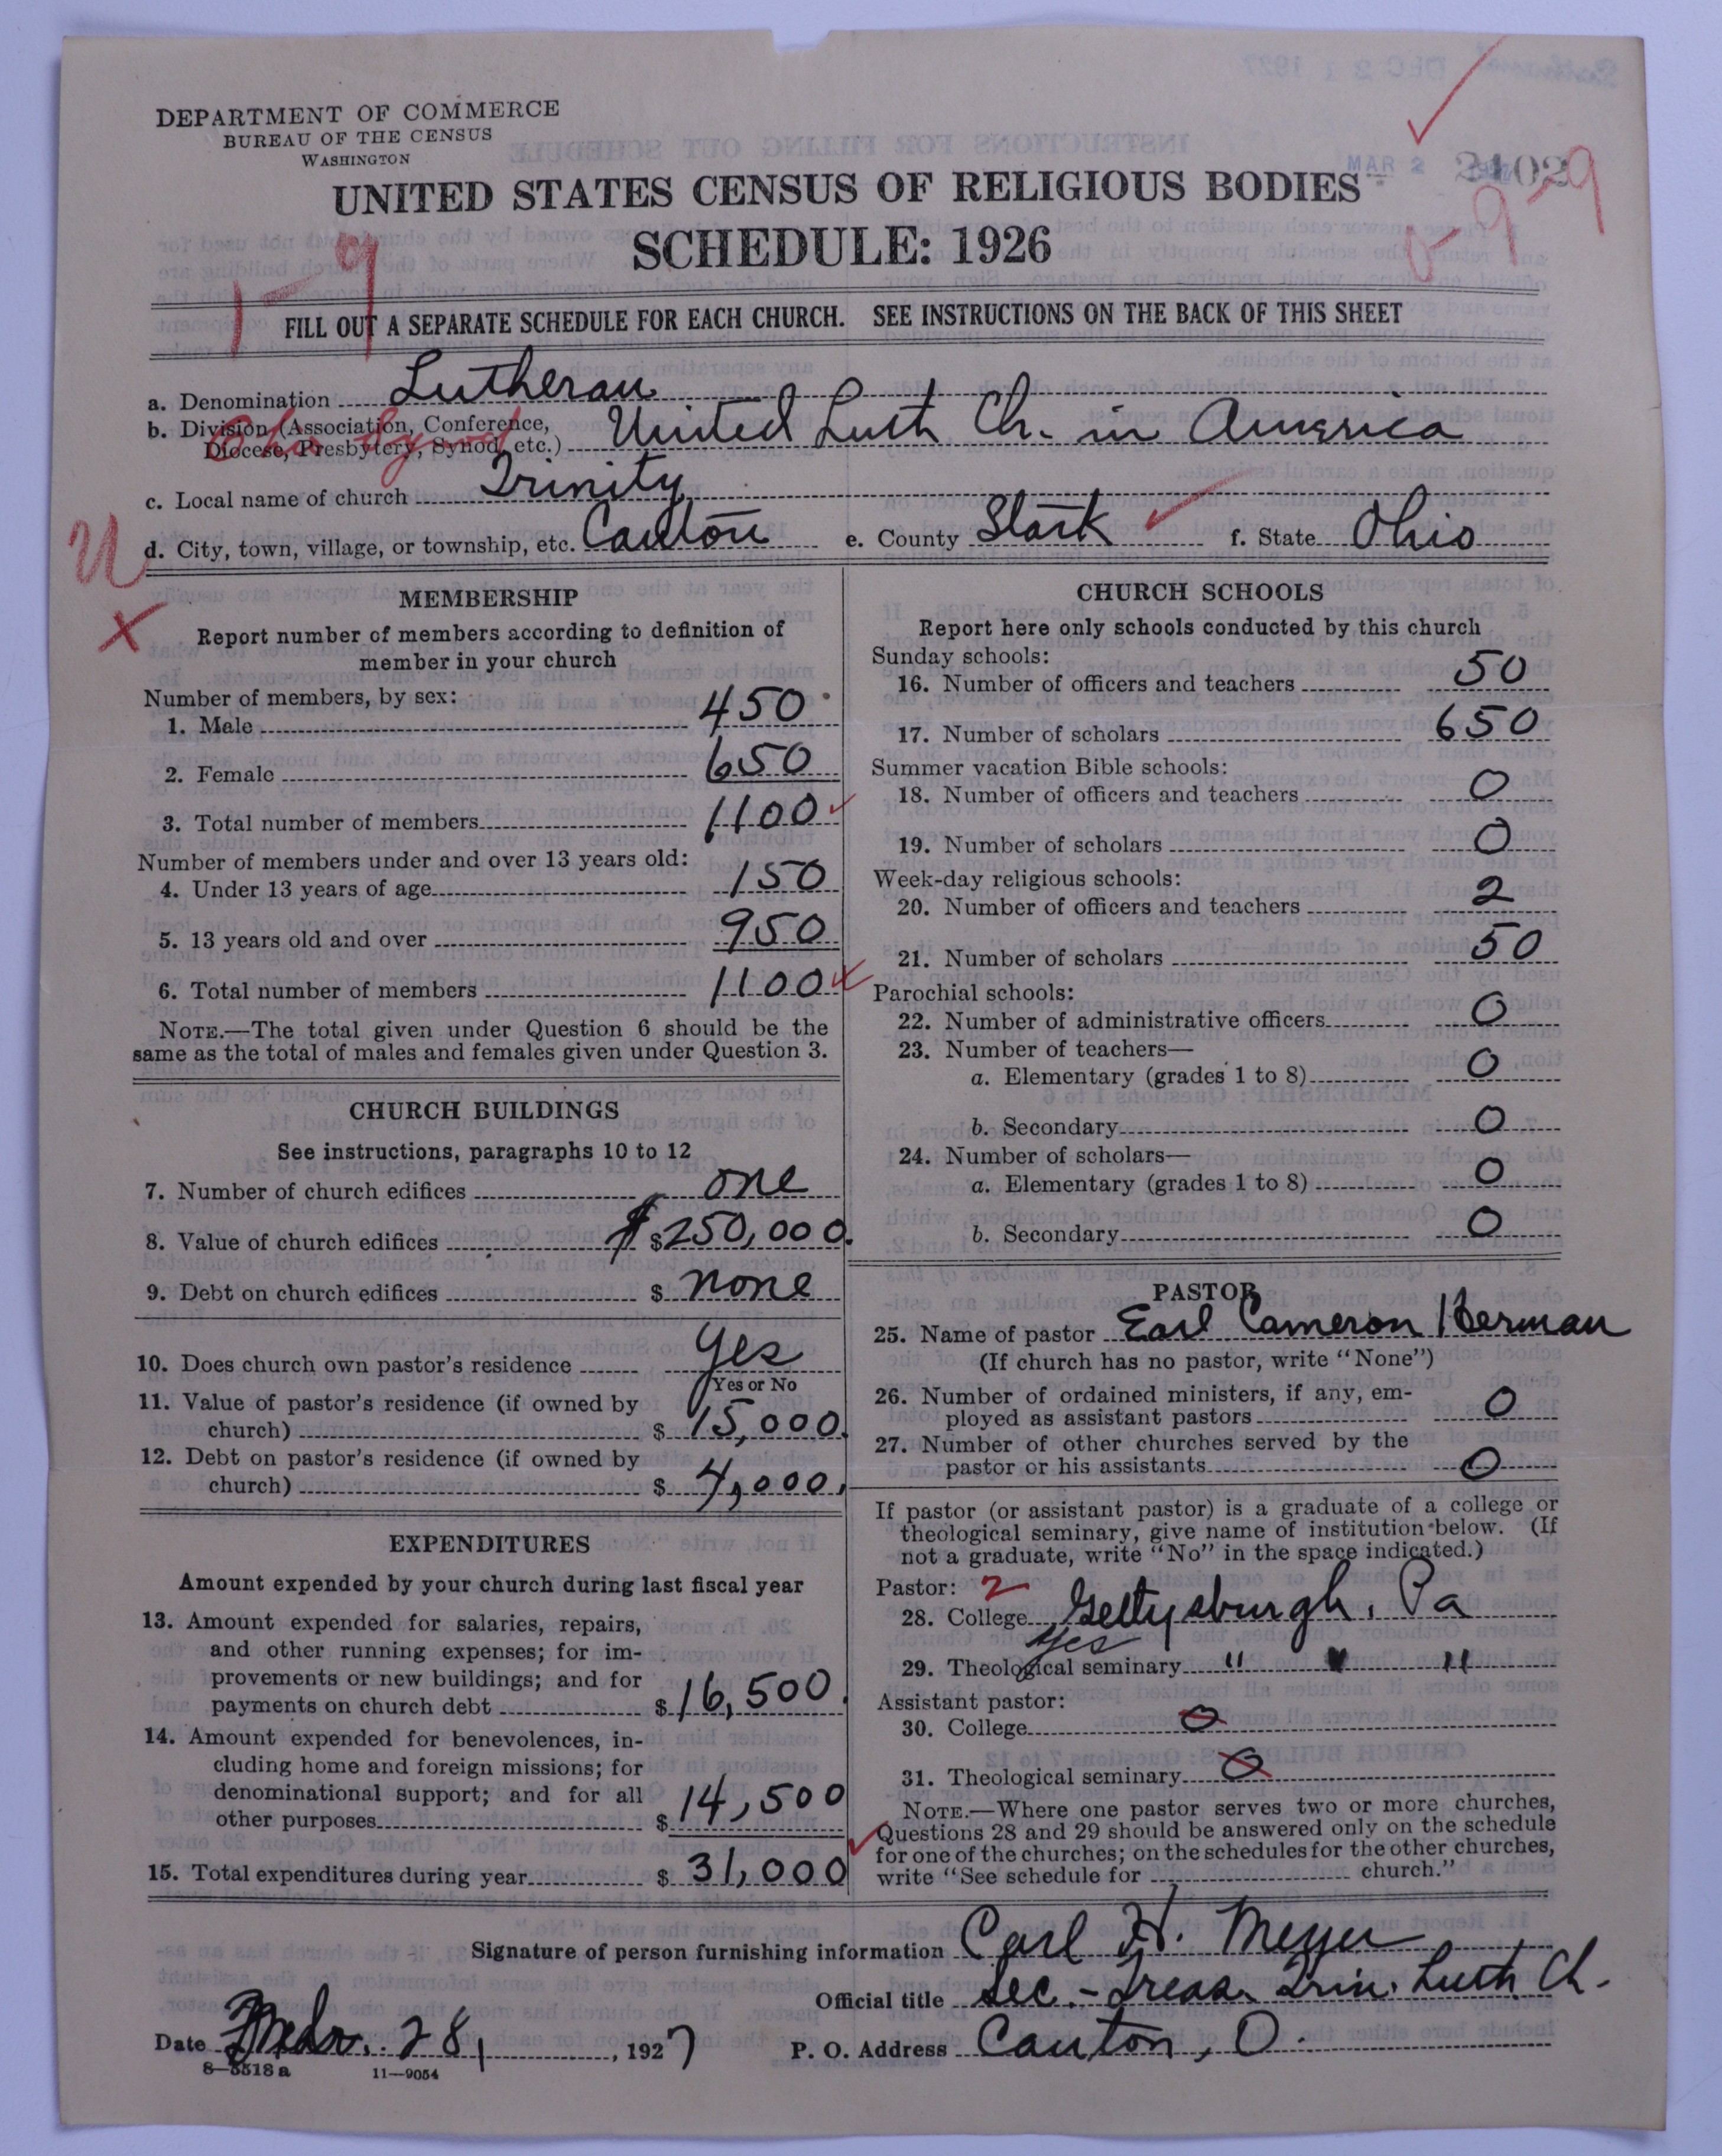 DEPARTMENT OF COMMERCE
BUREAU OF THE CENSUS
WASHINGTON
MAR 2
UNITED STATES CENSUS OF RELIGIOUS BODIES
SCHEDULE: 1926
1-9
0-9-9
FILL OUT A SEPARATE SCHEDULE FOR EACH CHURCH. SEE INSTRUCTIONS ON THE BACK OF THIS SHEET
a. Denomination Lutheran
b. Division (Association, Conference,
Diocese, Presbytery, Synod, etc.) United Luth Ch. in America
Ohio Synod
c. Local name of church Trinity
U
d. City, town, village, or township, etc. Canton e. County Stark f. State Ohio
X
MEMBERSHIP
Report number of members according to definition of
member in your church
Number of members, by sex:
1. Male 450
2. Female 650
3. Total number of members 1100
Number of members under and over 13 years old:
4. Under 13 years of age 150
5. 13 years old and over 950
6. Total number of members 1100
NOTE.—The total given under Question 6 should be the
same as the total of males and females given under Question 3.
CHURCH BUILDINGS
See instructions, paragraphs 10 to 12
7. Number of church edifices one
8. Value of church edifices $ $250,000.
9. Debt on church edifices $ none
10. Does church own pastor's residence Yes
Yes or No
11. Value of pastor's residence (if owned by
church) $ 15,000.
12. Debt on pastor's residence (if owned by
church) $ 4,000.
EXPENDITURES
Amount expended by your church during last fiscal year
13. Amount expended for salaries, repairs,
and other running expenses; for im-
provements or new buildings; and for
payments on church debt $ 16,500.
14. Amount expended for benevolences, in-
cluding home and foreign missions; for
denominational support; and for all
other purposes $ 14,500
15. Total expenditures during year $ 31,000
CHURCH SCHOOLS
Report here only schools conducted by this church
Sunday schools:
16. Number of officers and teachers 50
17. Number of scholars 650
Summer vacation Bible schools:
18. Number of officers and teachers 0
19. Number of scholars 0
Week-day religious schools:
20. Number of officers and teachers 2
21. Number of scholars 50
Parochial schools:
22. Number of administrative officers 0
23. Number of teachers—
a. Elementary (grades 1 to 8) 0
b. Secondary 0
24. Number of scholars—
a. Elementary (grades 1 to 8) 0
b. Secondary 0
PASTOR
25. Name of pastor Earl Cameron Herman
(If church has no pastor, write "None")
26. Number of ordained ministers, if any, em-
ployed as assistant pastors 0
27. Number of other churches served by the
pastor or his assistants 0
If pastor (or assistant pastor) is a graduate of a college or
theological seminary, give name of institution below. (If
not a graduate, write "No" in the space indicated.)
Pastor: 2
28. College Gettysburgh, Pa
yes
29. Theological seminary " " "
Assistant pastor:
30. College 0
31. Theological seminary 0
NOTE.—Where one pastor serves two or more churches,
Questions 28 and 29 should be answered only on the schedule
for one of the churches; on the schedules for the other churches,
write "See schedule for church."
Signature of person furnishing information Carl H. Meyer
Official title Sec.-Treas. Trin. Luth. Ch.
Date 28, 1927 P. O. Address Canton, O.
8—5518 a 11—9054